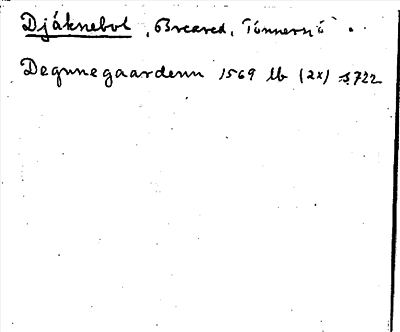 Djäknebol, Breared, Tönnersjö.
Degnnegaardenn 1569 lb (2x) s722